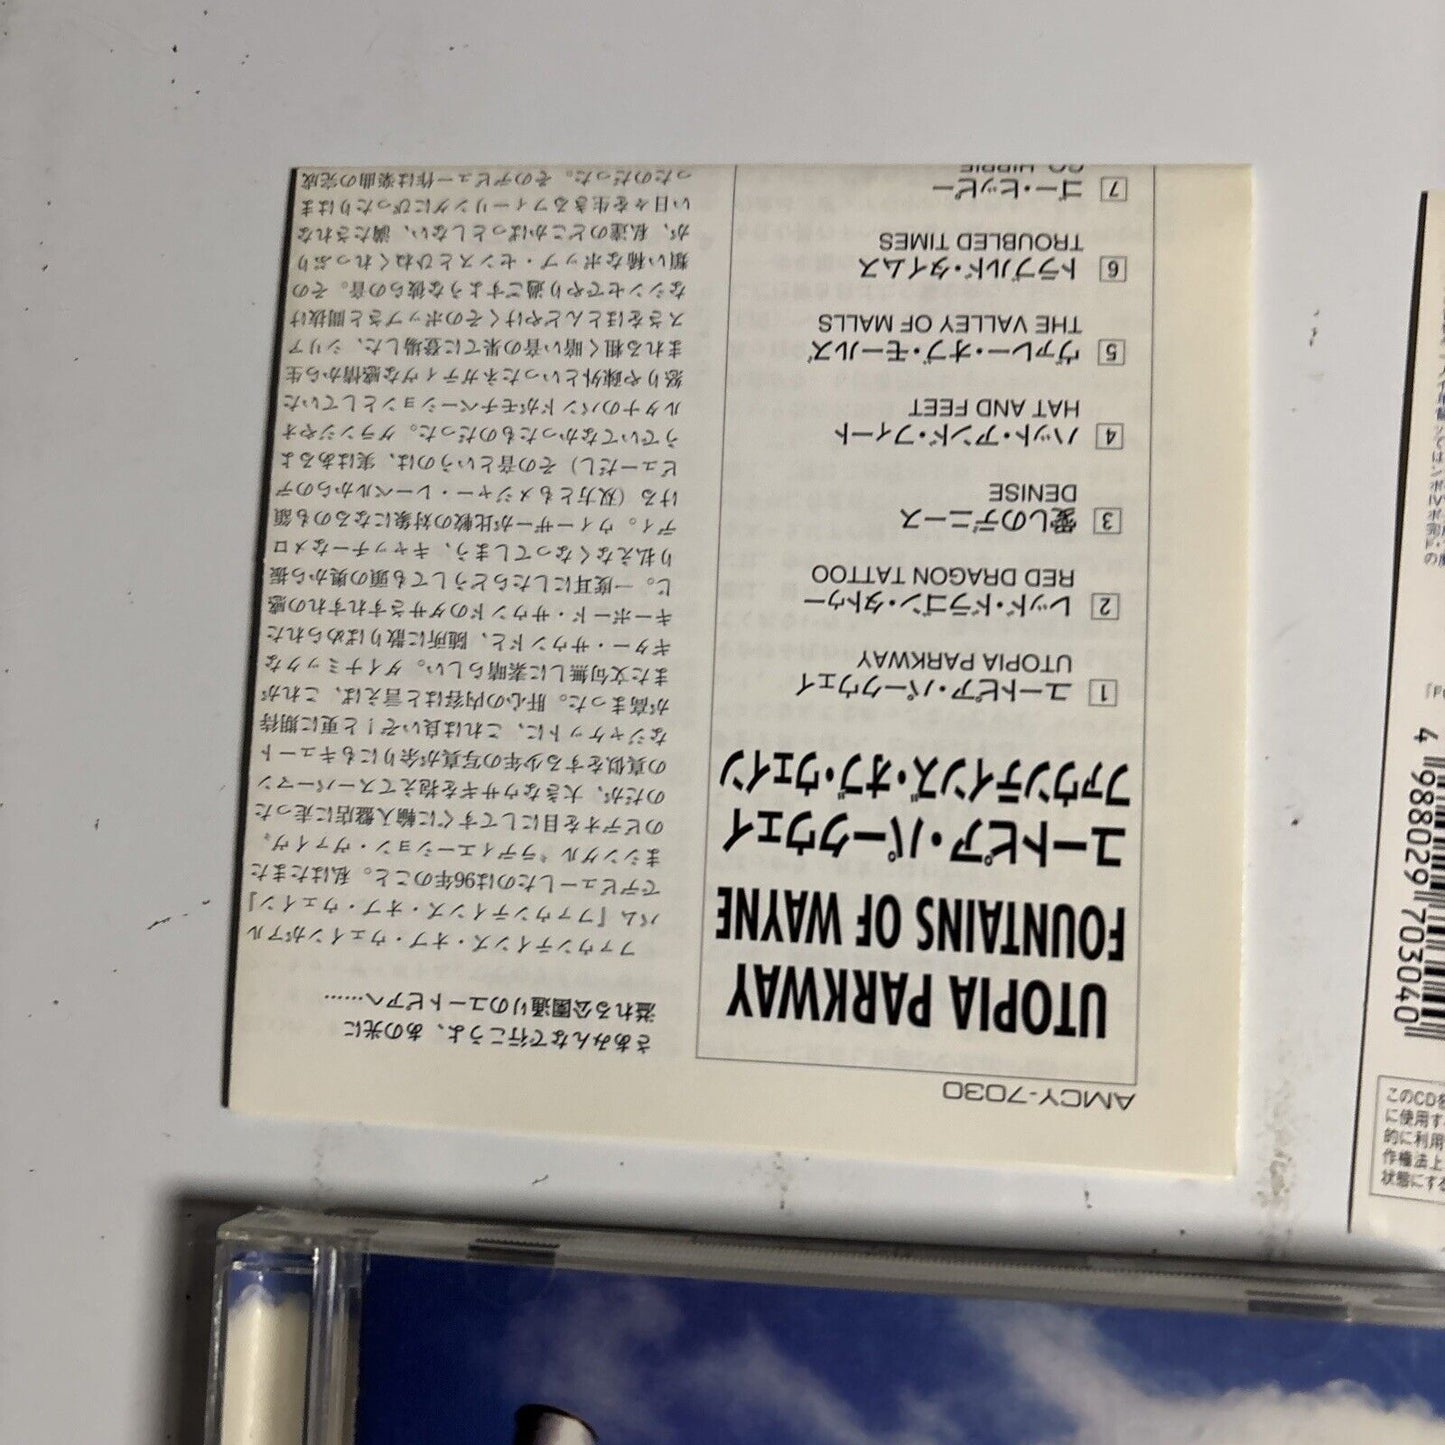 AMCY-7030
UTOPIA PARKWAY
FOUNTAINS OF WAYNE
ユートピア・パークウェイ
ファウンテインズ・オブ・ウェイン
1 ユートピア・パークウェイ
UTOPIA PARKWAY
2 レッド・ドラゴン・タトゥー
RED DRAGON TATTOO
3 愛しのデニース
DENISE
4 ハット・アンド・フィート
HAT AND FEET
5 ヴァレー・オブ・モールズ
THE VALLEY OF MALLS
6 トラブルド・タイムス
TROUBLED TIMES
7 ゴー・ヒッピー
GO, HIPPIE
さあみんなで行こうよ、あの光に
溢れる公園通りのユートピアへ……
ファウンテインズ・オブ・ウェインがアル
バム『ファウンテインズ・オブ・ウェイン』
でデビューしたのは96年のこと。私はたまた
まシングル〝ラディエーション・ヴァイヴ〟
のビデオを目にしてすぐに輸入盤店に走った
のだが、大きなウサギを抱えてスーパーマン
の真似をする少年の写真が余りにもキュート
なジャケットに、これは良いぞ！と更に期待
が高まった。肝心の内容はと言えば、これが
また文句無しに素晴らしい。ダイナミックな
ギター・サウンドと、随所に散りばめられた
キーボード・サウンドのダサさすれすれの感
じ。一度耳にしたらどうしても頭の奥から振
り払えなくなってしまう、キャッチーなメロ
ディ。ウィーザーが比較の対象になるのも頷
ける（双方ともメジャー・レーベルからのデ
ビューだし）その音というのは、実はあるよ
うでいてなかったものだった。グランジやオ
ルタナのバンドがモチベーションとしていた
怒りや疎外といったネガティヴな感情から生
まれる粗く暗い音の果てに登場した、シリア
スさをほとんどやけくそのポップさと間抜け
なシンセでやり過ごすような彼らの音。その
類い稀なポップ・センスとひねくれっぷり
が、私達のどこかぱっとしない、満たされな
い日々を生きるフィーリングにぴったりはま
ったのだった。そのデビュー作は楽曲の完成
4 988029 703040
このCDを
に使用す
的に利用
作権法上
状態にする